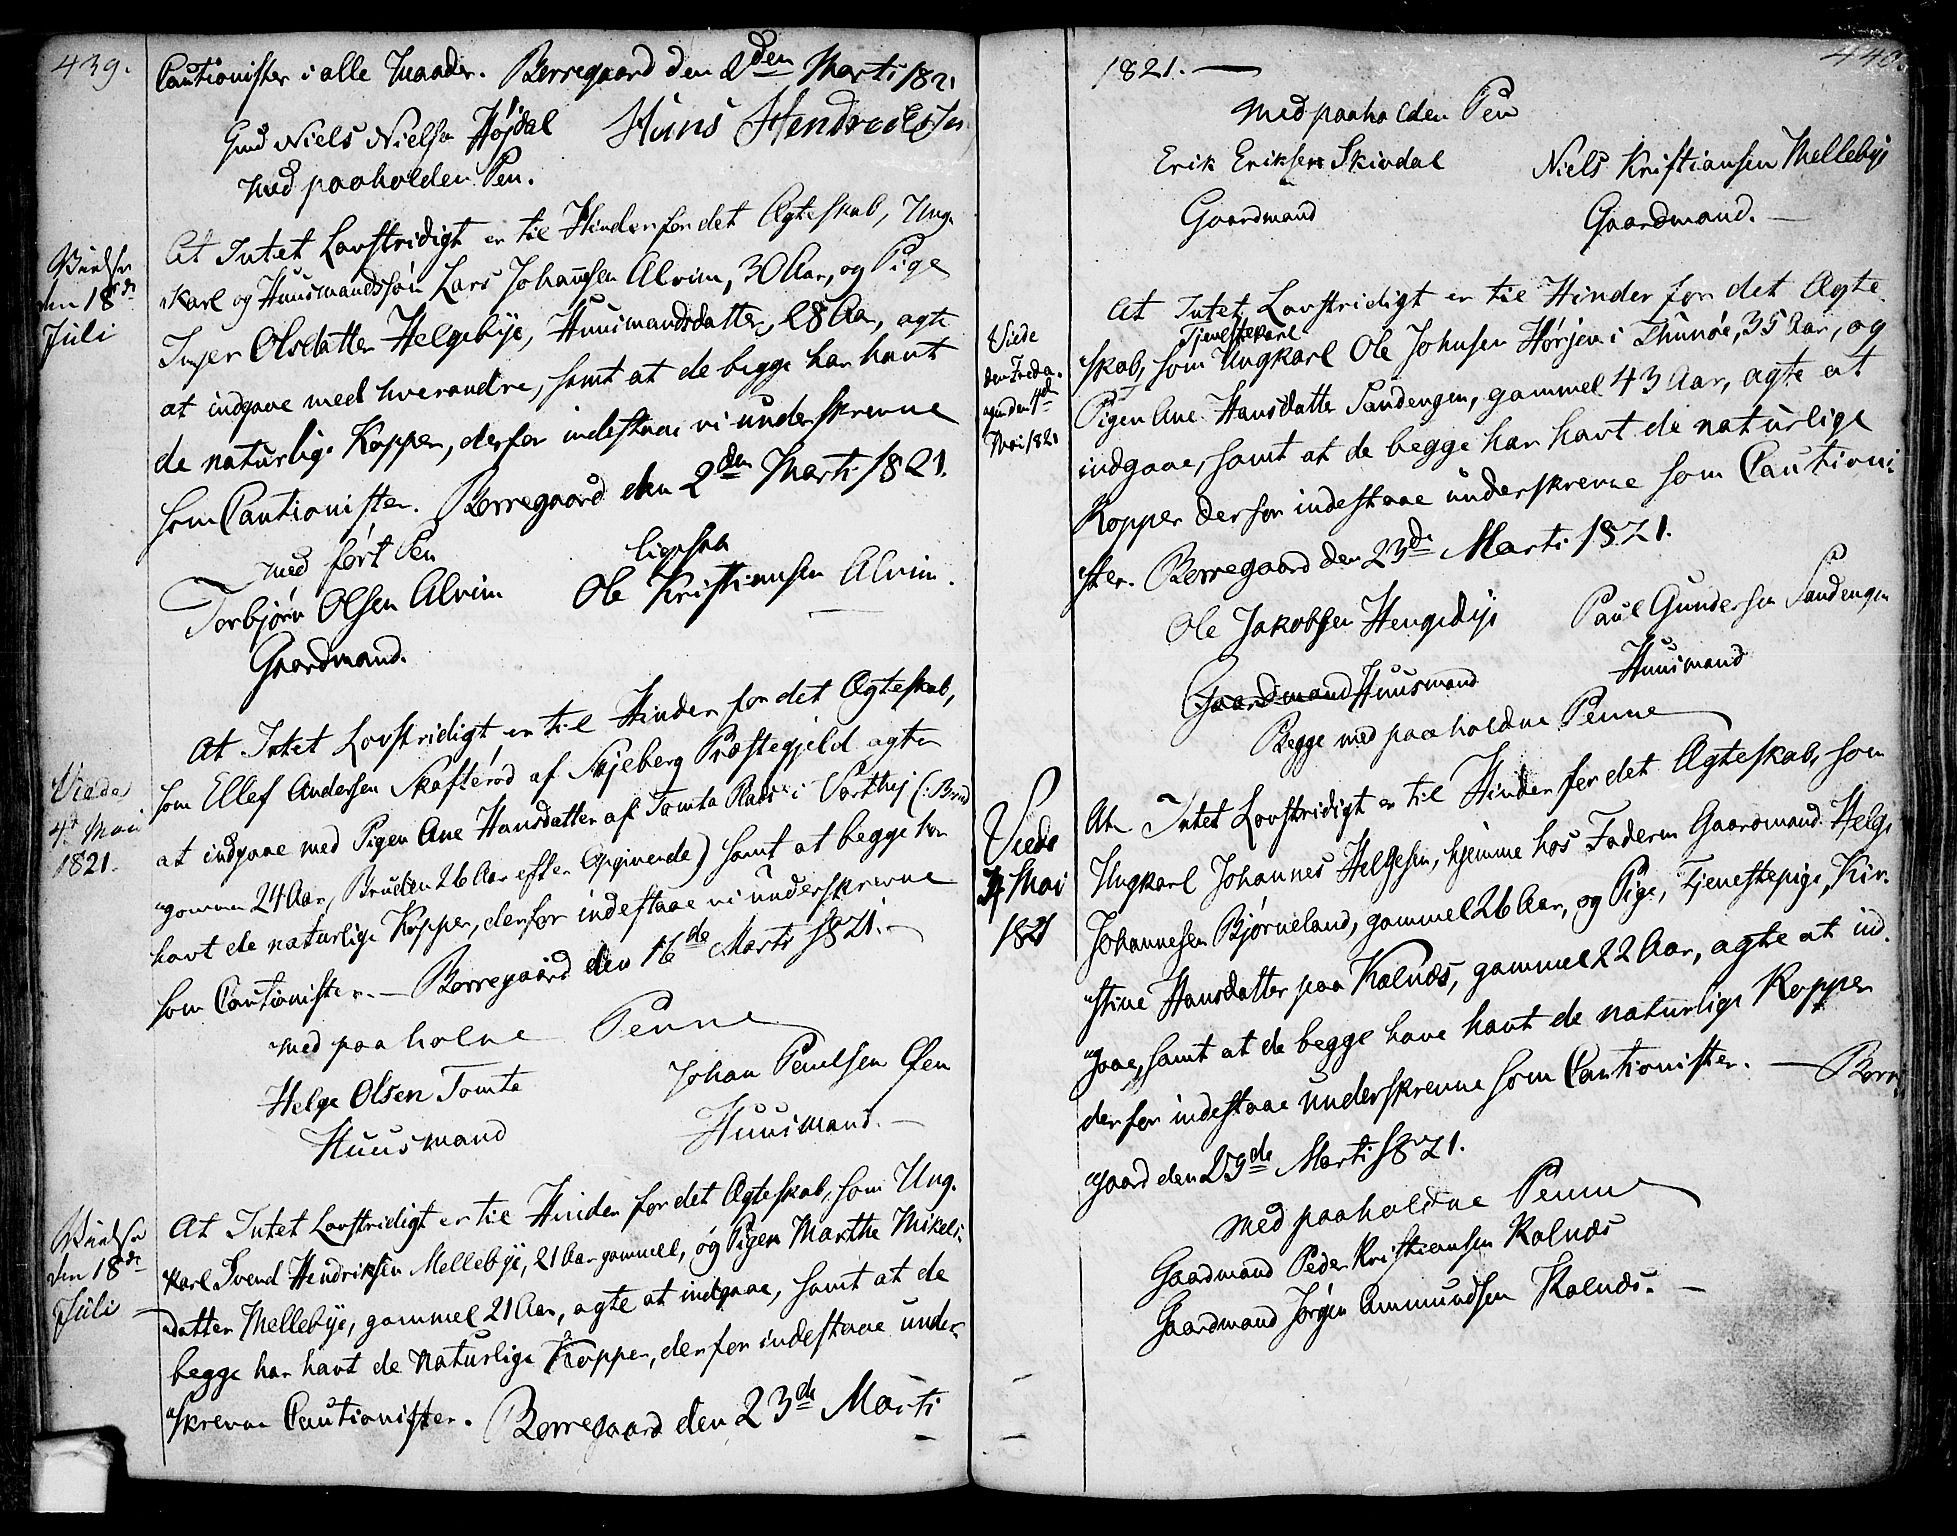 439.
Cautionister i alle Maader. Borregaard den 2den Marti 1821
Gmd Niels Nielsen Höjdal Hans Hendrecksen
med paaholden Pen.
Viedes
den 18de
Juli
At Intet Lovstridigt er til Hinder for det Ægteskab, Ung-
karl og Huusmandssön Lars Johannsen Alvim, 30 Aar, og Pige
Inger Olsdatter Helgebye, Huusmandsdatter, 28 Aar, agte
at indgaae med hverandre, samt at de begge har havt
de naturlige Kopper, derfor indestaae vi underskrevne
som Cautionister. Borregaard den 2den Marti 1821.
med fört Pen ligesaa
Torbjörn Olsen Alvim Ole Kristiansen Alvim.
Gaardmand.
Viede
4de Mai
1821.
At Intet Lovstridigt er til Hinder for det Ægteskab,
som Ellef Andersen Skafteröd af Skjeberg Præstegjeld agter
at indgaae med Pigen Ane Hansdatter af Tomta Plads i Varteig (: Brud
gommen 24 Aar, Bruden 26 Aar efter Opgivende) samt at begge har
havt de naturlige Kopper, derfor indestaae vi underskrevne
som Cautionister. — Borregaard den 16de Marti 1821. —
med paaholne Penne
Helge Olsen Tomte Johan Poulsen
Huusmand Huusmand. —
Viedes
den 18de
Juli —
At Intet Lovstridigt er til Hinder for det Ægteskab, som Ung-
karl Svend Hendriksen Mellebye, 21 Aar gammel, og Pigen Marthe Mikels-
datter Mellebye, gammel 21 Aar, agte at indgaae, samt at de
begge har havt de naturlige Kopper, derfor indestaae under-
skrevne Cautionister. Borregaard den 23de Marti
440.
1821. —
med paaholden Pen
Erik Eriksen Skivdal Niels Kristiansen Mellebye
Gaardmand Gaardmand. —
Viede
den Freda-
gen den 4de
Mai 1821
At Intet Lovstridigt er til Hinder for det Ægte-
Tjenstekarl
skab, som Ungkarl Ole Johnsen Hörjen i Thunöe, 35 Aar, og
Pigen Ane Hansdatter Sandengen, gammel 43 Aar, agte at
indgaae, samt at de begge har havt de naturlige
Kopper derfor indestaae underskrevne som Cautioni-
ster. Borregaard den 23de Marti 1821.
Ole Jakobsen Hengedye Paul Gundersen Sandengen
Gaardmand Huusmand Huusmand
Begge med paaholdne Penne
Viede
4 Mai
1821
At Intet Lovstridigt er til Hinder for det Ægteskab, som
Ungkarl Johannes Helgesen, hjemme hos Faderen Gaardmand Helge
Johannesen Björneland, gammel 26 Aar, og Pige, Tjenestepige, Kir-
stine Hansdatter paa Kalnæs, gammel 22 Aar, agte at ind-
gaae, samt at de begge have havt de naturlige Kopper
derfor indestaae underskrevne som Cautionister. — Borre-
gaard den 29de Marti 1821.
med paaholdne Penne
Gaardmand Peder Kristiansen Kalnæs
Gaardmand Jörgen Ammundsen Kalnæs. —